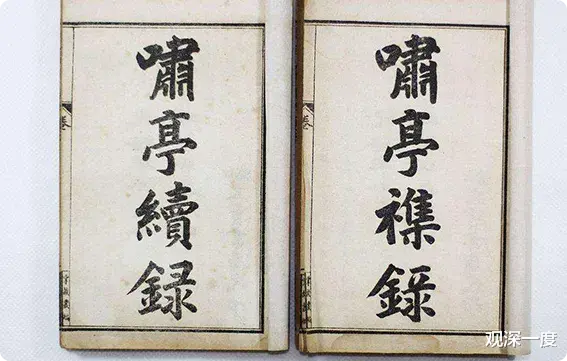 嘯亭襍錄
卷
嘯亭續録
卷
观深一度